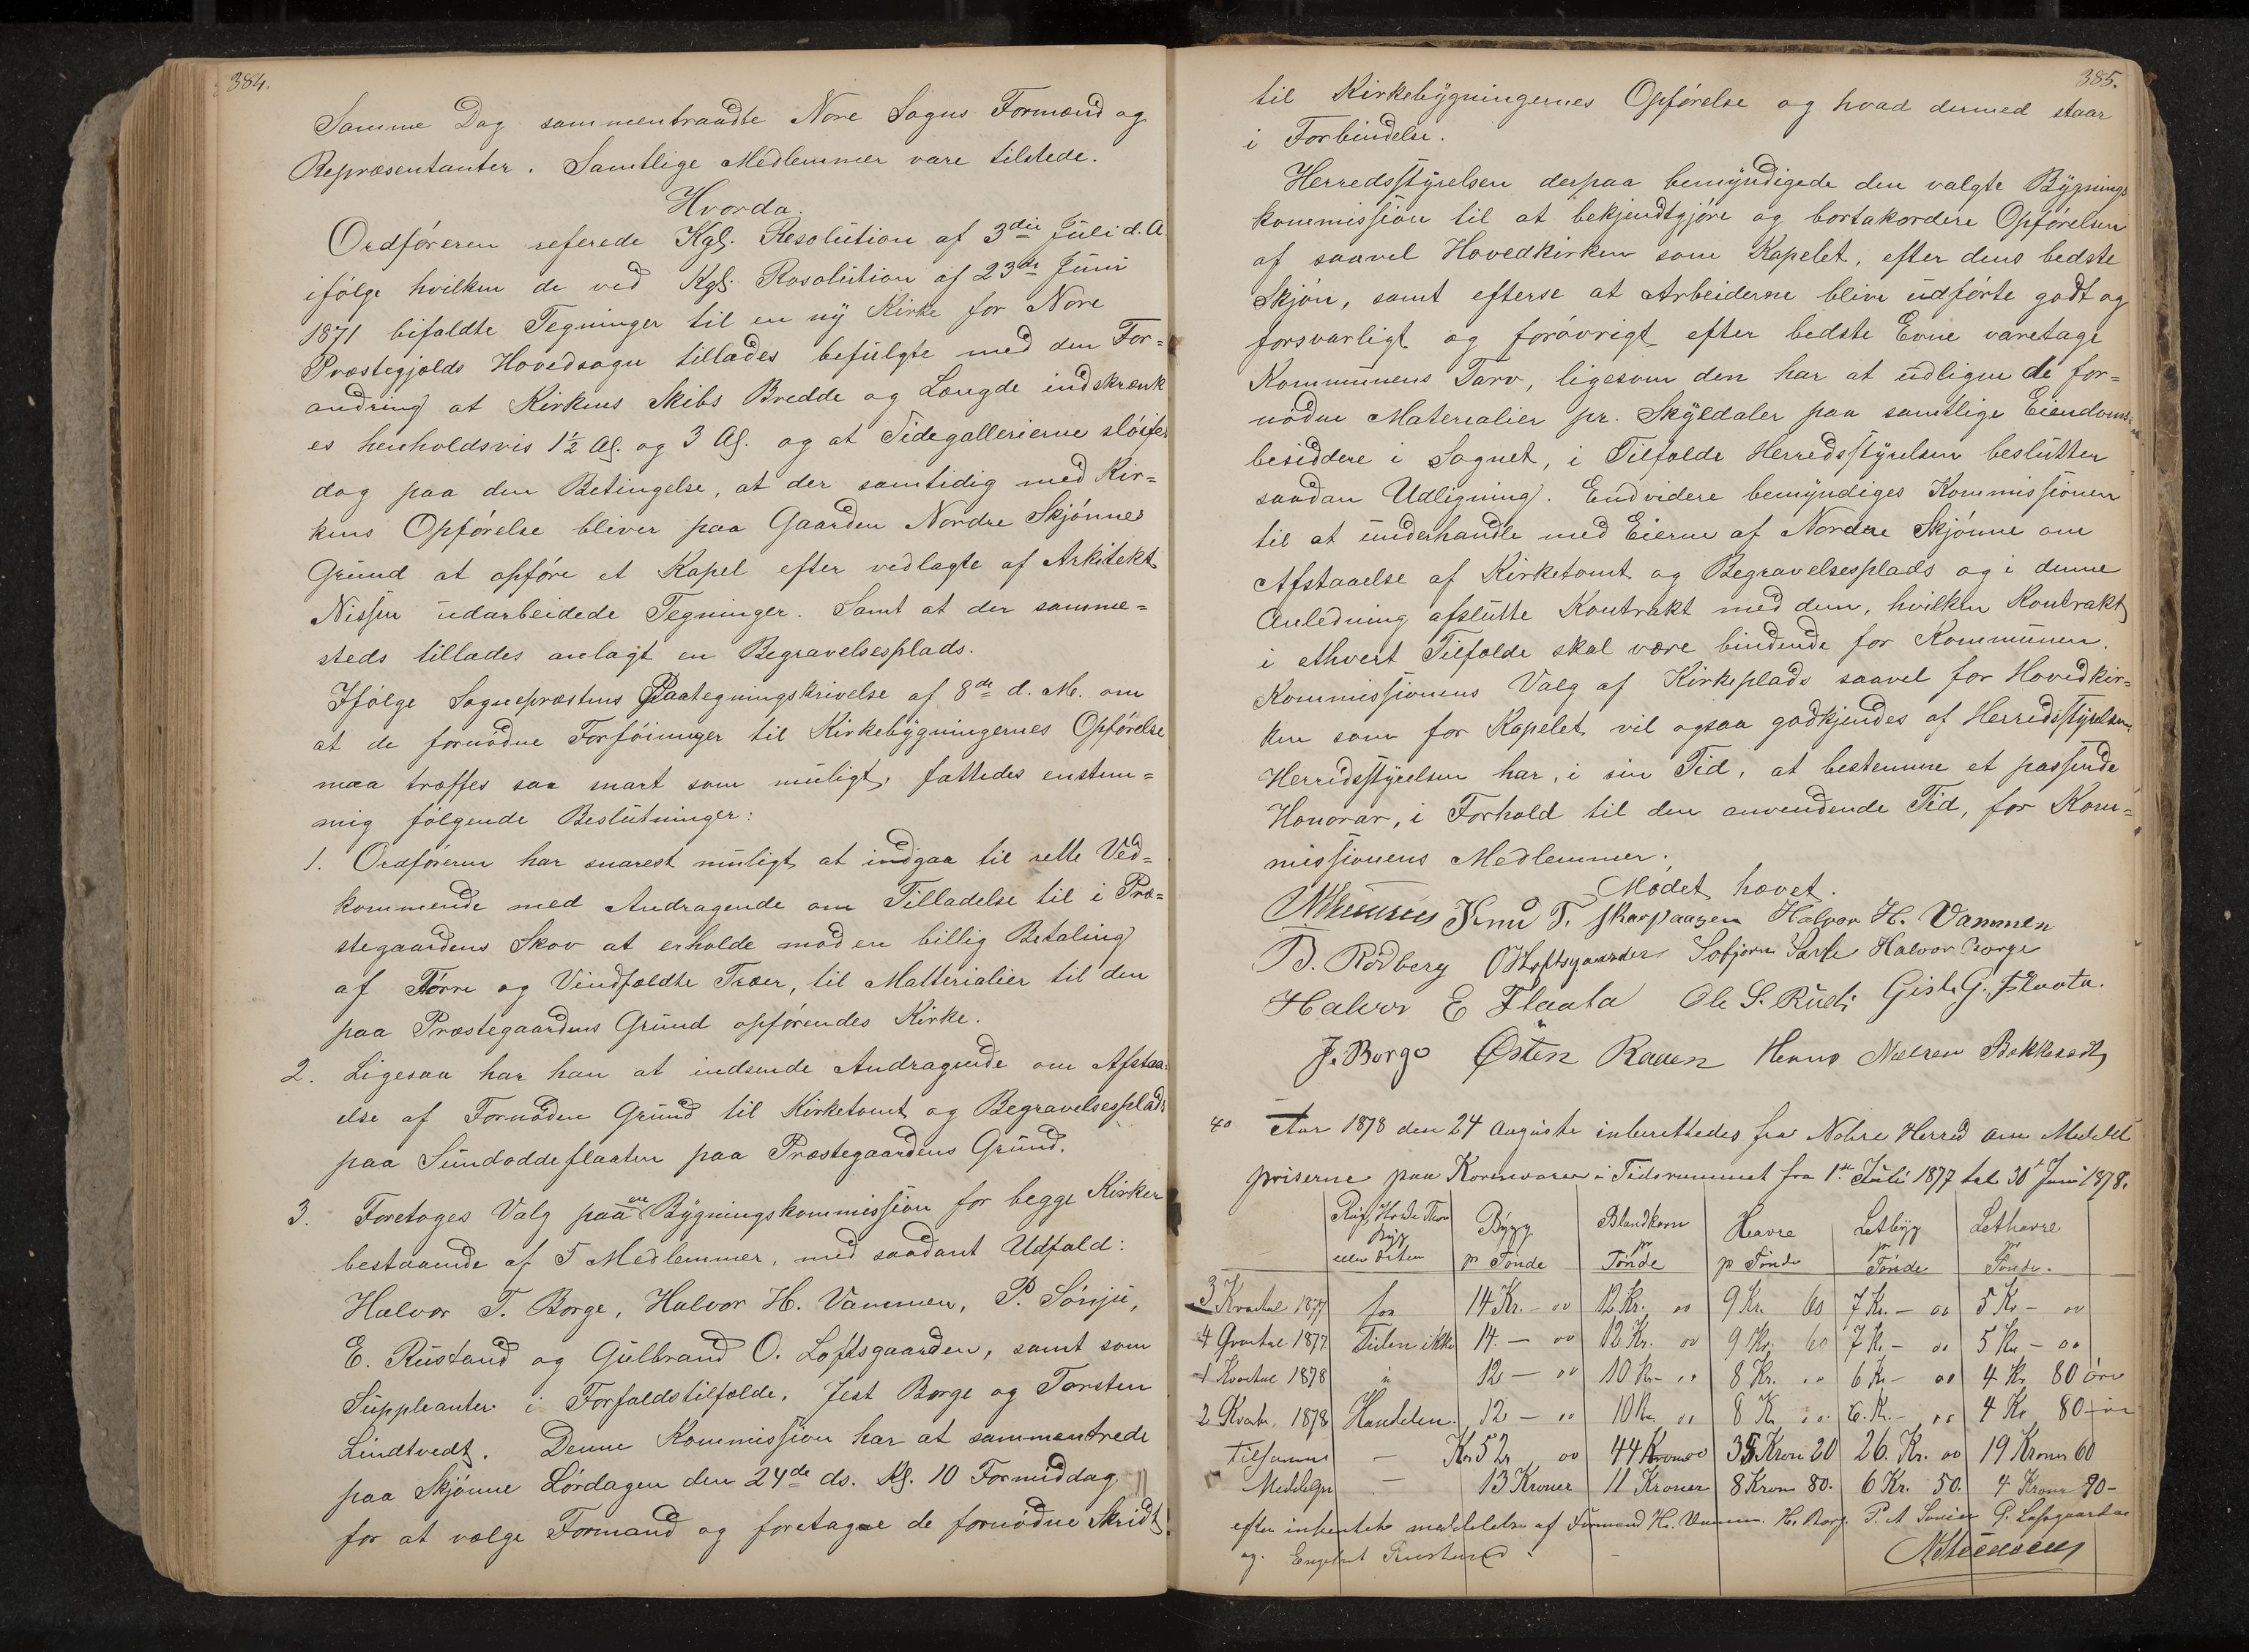 384.
Samme Dag sammentraadte Nore Sogns Formænd og
Repræsentanter. Samtlige Medlemmer vare tilstede.
Hvorda.
Ordføreren referede Kgl. Resolution af 3die Juli d. A.
ifølge hvilken de ved Kgl. Rosolution af 23de Juni
1871 bifaldte Tegninger til en ny Kirke for Nore
Præstegjælds Hovedsogn tillades befulgte med den For-
andring at Kirkens Skibs Bredde og Længde indskrænk
es henholdsvis 1½ Al. og 3 Al. og at Sidegallerierne sløifes
dog paa den Betingelse, at der samtidig med Kir-
kens Opførelse bliver paa Gaarden Nordre Skjønnes
Grund at opføre et Kapel efter vedlagte af Arkitekt
Nissen udarbeidede Tegninger. Samt at der samme-
steds tillades anlagt en Begravelsesplads.
Ifølge Sognepræstens Paategningskrivelse af 8de d. M. om
at de fornødne Forføininger til Kirkebygningernes Opførelse
maa træffes saa snart som muligt, fattedes enstem-
mig følgende Beslutninger:
1. Ordføreren har snarest muligt at indgaa til rette Ved-
kommende med Andragende om Tilladelse til i Præ-
stegaardens Skov at erholde mod en billig Betaling
af Tørre og Vindfældte Træer, til Matterialier til den
paa Præstegaardens Grund opførendes Kirke.
2. Ligesaa har han at indsende Andragende om Afstaa-
else af Fornøden Grund til Kirketomt og Begravelsesplads
paa Sundoddeflaaten paa Præstegaardens Grund.
3. Foretoges Valg paa en Bygningskommission for begge Kirker
bestaaende af 5 Medlemmer, med saadant Udfald:
Halvor T. Borge, Halvor H. Vammen, P. Sønju,
E. Rustand og Gulbrand O. Loftsgaarden, samt som
Suppleanter i Forfaldstilfælde, Jest Borge og Torsten
Lindtvedt. Denne Kommission har at sammentrede
paa Skjønne Lørdagen den 24de ds. Kl. 10 Formiddag
for at vælge Formand og foretagee de fornødne Skridt
385.
til Kirkebygningernes Opførelse og hvad dermed staar
i Forbindelse.
Herredsstyrelsen derpaa bemyndigede den valgte Bygnings
kommission til at bekjendtgjøre og bortakordere Opførelsen
af saavel Hovedkirken som Kapelet, efter dens bedste
Skjøn, samt efterse at Arbeiderne blive udførte godt og
forsvarligt og forøvrigt efter bedste Evne varetage
Kommunens Tarv, ligesom den har at udligne de for-
nødne Materialier pr. Skyldaler paa samtlige Eiendoms-
besiddere i Sognet, i Tilfælde Herredsstyrelsen beslutter
saadan Udligning. Endvidere bemyndiges Kommissionen
til at underhandle med Eierne af Nordre Skjønne om
Afstaaelse af Kirketomt og Begravelsesplads og i denne
Anledning afslutte Kontrakt med dem, hvilken Kontrakt
i ethvert Tilfælde skal være bindende for Kommunen.
Kommissionens Valg af Kirkeplads saavel for Hovedkir-
ken som for Kapelet vil ogsaa godkjendes af Herredsstyrelsen.
Herredsstyrelsen har, i sin Tid, at bestemme et passende
Honorar, i Forhold til den anvendende Tid, for Kom-
missionens Medlemmer.
Mødet hævet.
Knud T. Skarpaasen Halvor H. Vammen
B. Rødberg Loftsgaarden Halvor Borge
Halvor E Flaata Ole S. Rudi G. Flaata.
J. Borge Østen Raaen Nielsen
40 Aar 1878 den 24 Auguste inberettedes fra Nohre Herred om Middel
priserne paa Kornvarer i Tidsrummet fra 1st Juli 1877 til 30t Juni 1878.
Rug, Bygg Blandkorn Havre Letbyg Lethavre
eller Erter pr Tønde pr Tønde pr Tønde pr Tønde pr Tønde.
3 Kvartal 1877 for 14 Kr. - 00 12 Kr. 00 9 Kr. 60 7 Kr. - 00 5 Kr - 00
4 Qvartal 1877 Tiden ikke 14 - 00 12 Kr. 00 9 Kr. 60 7 Kr - 00 5 Kr - 00
1 Kvartal 1878 i 12 - 00 10 Kr - 00 8 Kr. 00 6 Kr - 00 4 Kr 80 øre
2 Kvart. 1878 Handelen. 12 - 00 10 Kr 00 8 Kr 00 6. Kr. - 00 4 Kr 80 ør
Tilsamms - Kr 52 00 44 Kroner 00 35 Kron 20 26. Kr. 00 19 Kroner 60
Meddelpr - 13 Kroner 11 Kroner 8 Kron 80. 6 Kr. 50. 4 Krone 90 -
efter inhentet meddelelse af Formand H. Vammen. H. Borg. P.
og.